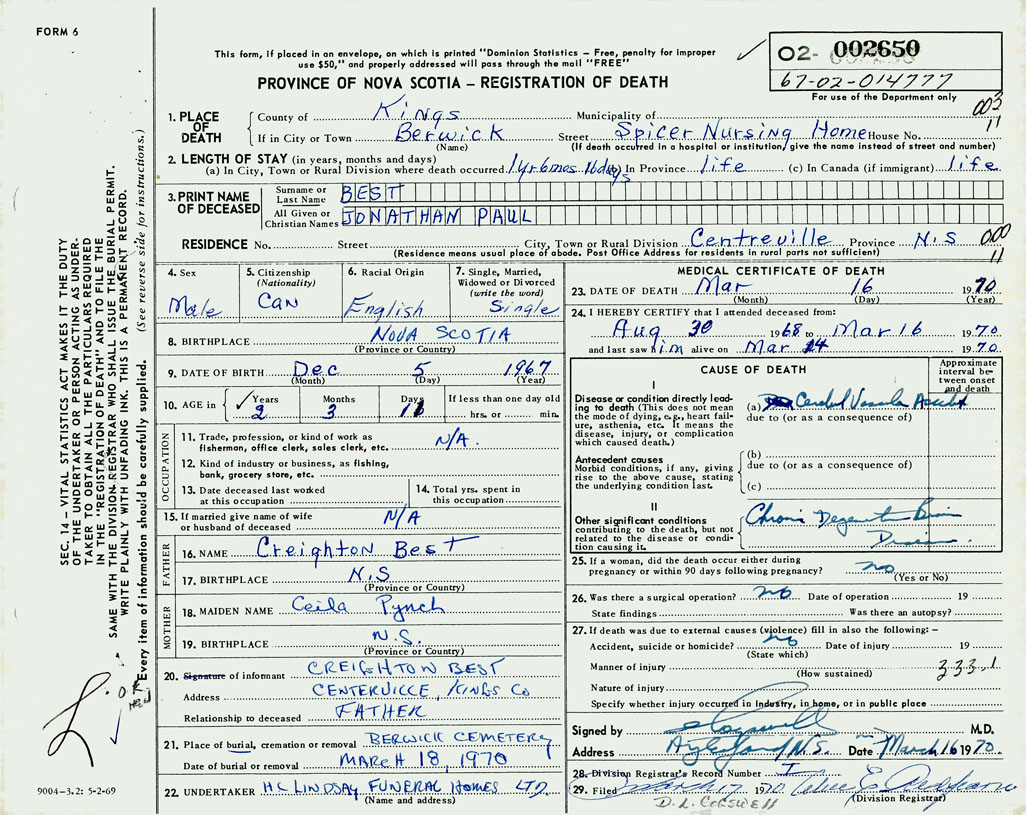 FORM 6
This form, if placed in an envelope, on which is printed "Dominion Statistics – Free, penalty for improper
use $50," and properly addressed will pass through the mail "FREE"
02- 002650
67-02-014777
For use of the Department only
PROVINCE OF NOVA SCOTIA – REGISTRATION OF DEATH
003
11
1. PLACE OF DEATH
County of Kings Municipality of
If in City or Town Berwick Street Spicer Nursing Home House No.
(Name) (If death occurred in a hospital or institution, give the name instead of street and number)
2. LENGTH OF STAY (in years, months and days)
(a) In City, Town or Rural Division where death occurred 1yr 6mos 16days (b) In Province life (c) In Canada (if immigrant) life
3. PRINT NAME OF DECEASED
Surname or Last Name BEST
All Given or Christian Names JONATHAN PAUL
RESIDENCE No. Street City, Town or Rural Division Centreville Province N.S
000
11
(Residence means usual place of abode. Post Office Address for residents in rural parts not sufficient)
4. Sex Male
5. Citizenship (Nationality) Can
6. Racial Origin English
7. Single, Married, Widowed or Divorced (write the word) Single
8. BIRTHPLACE NOVA SCOTIA
(Province or Country)
9. DATE OF BIRTH Dec 5 1967
(Month) (Day) (Year)
10. AGE in Years 2 Months 3 Days 11 If less than one day old
hrs. or min.
OCCUPATION
11. Trade, profession, or kind of work as
fisherman, office clerk, sales clerk, etc. N/A.
12. Kind of industry or business, as fishing,
bank, grocery store, etc.
13. Date deceased last worked
at this occupation
14. Total yrs. spent in
this occupation
15. If married give name of wife
or husband of deceased N/A
FATHER
16. NAME Creighton Best
17. BIRTHPLACE N.S
(Province or Country)
MOTHER
18. MAIDEN NAME Ceila Pynch
19. BIRTHPLACE N.S.
(Province or Country)
20. Signature of informant CREIGHTON BEST
Address CENTERVILLE, KINGS CO
Relationship to deceased FATHER
21. Place of burial, cremation or removal BERWICK CEMETERY
Date of burial or removal MARCH 18, 1970
22. UNDERTAKER H C LINDSAY FUNERAL HOMES LTD.
(Name and address)
MEDICAL CERTIFICATE OF DEATH
23. DATE OF DEATH Mar 16 1970
(Month) (Day) (Year)
24. I HEREBY CERTIFY that I attended deceased from:
Aug 30 1968 to Mar 16 1970
and last saw him alive on Mar 14 1970
CAUSE OF DEATH
Approximate interval between onset and death
I
Disease or condition directly leading to death (This does not mean the mode of dying, e.g., heart failure, asthenia, etc. It means the disease, injury, or complication which caused death.)
(a) Cerebral Vascular Accident
due to (or as a consequence of)
Antecedent causes
Morbid conditions, if any, giving rise to the above cause, stating the underlying condition last.
(b)
due to (or as a consequence of)
(c)
II
Other significant conditions
contributing to the death, but not related to the disease or condition causing it.
Chronic Degenerative Brain
Disease
25. If a woman, did the death occur either during
pregnancy or within 90 days following pregnancy? no
(Yes or No)
26. Was there a surgical operation? no Date of operation 19
State findings Was there an autopsy?
27. If death was due to external causes (violence) fill in also the following: –
Accident, suicide or homicide? no Date of injury 19
(State which)
Manner of injury 333.1
(How sustained)
Nature of injury
Specify whether injury occurred in industry, in home, or in public place
Signed by M.D.
Address Aylesford N.S. Date March 16 1970.
28. Division Registrar's Record Number
29. Filed March 17 1970
(Division Registrar)
D. L. COGSWELL
SEC. 14 – VITAL STATISTICS ACT MAKES IT THE DUTY
OF THE UNDERTAKER OR PERSON ACTING AS UNDER-
TAKER TO OBTAIN ALL THE PARTICULARS REQUIRED
IN THE "REGISTRATION OF DEATH" AND TO FILE THE
SAME WITH THE DIVISION REGISTRAR WHO SHALL ISSUE THE BURIAL PERMIT.
WRITE PLAINLY WITH UNFADING INK. THIS IS A PERMANENT RECORD.
Every item of information should be carefully supplied. (See reverse side for instructions.)
9004-3.2: 5-2-69